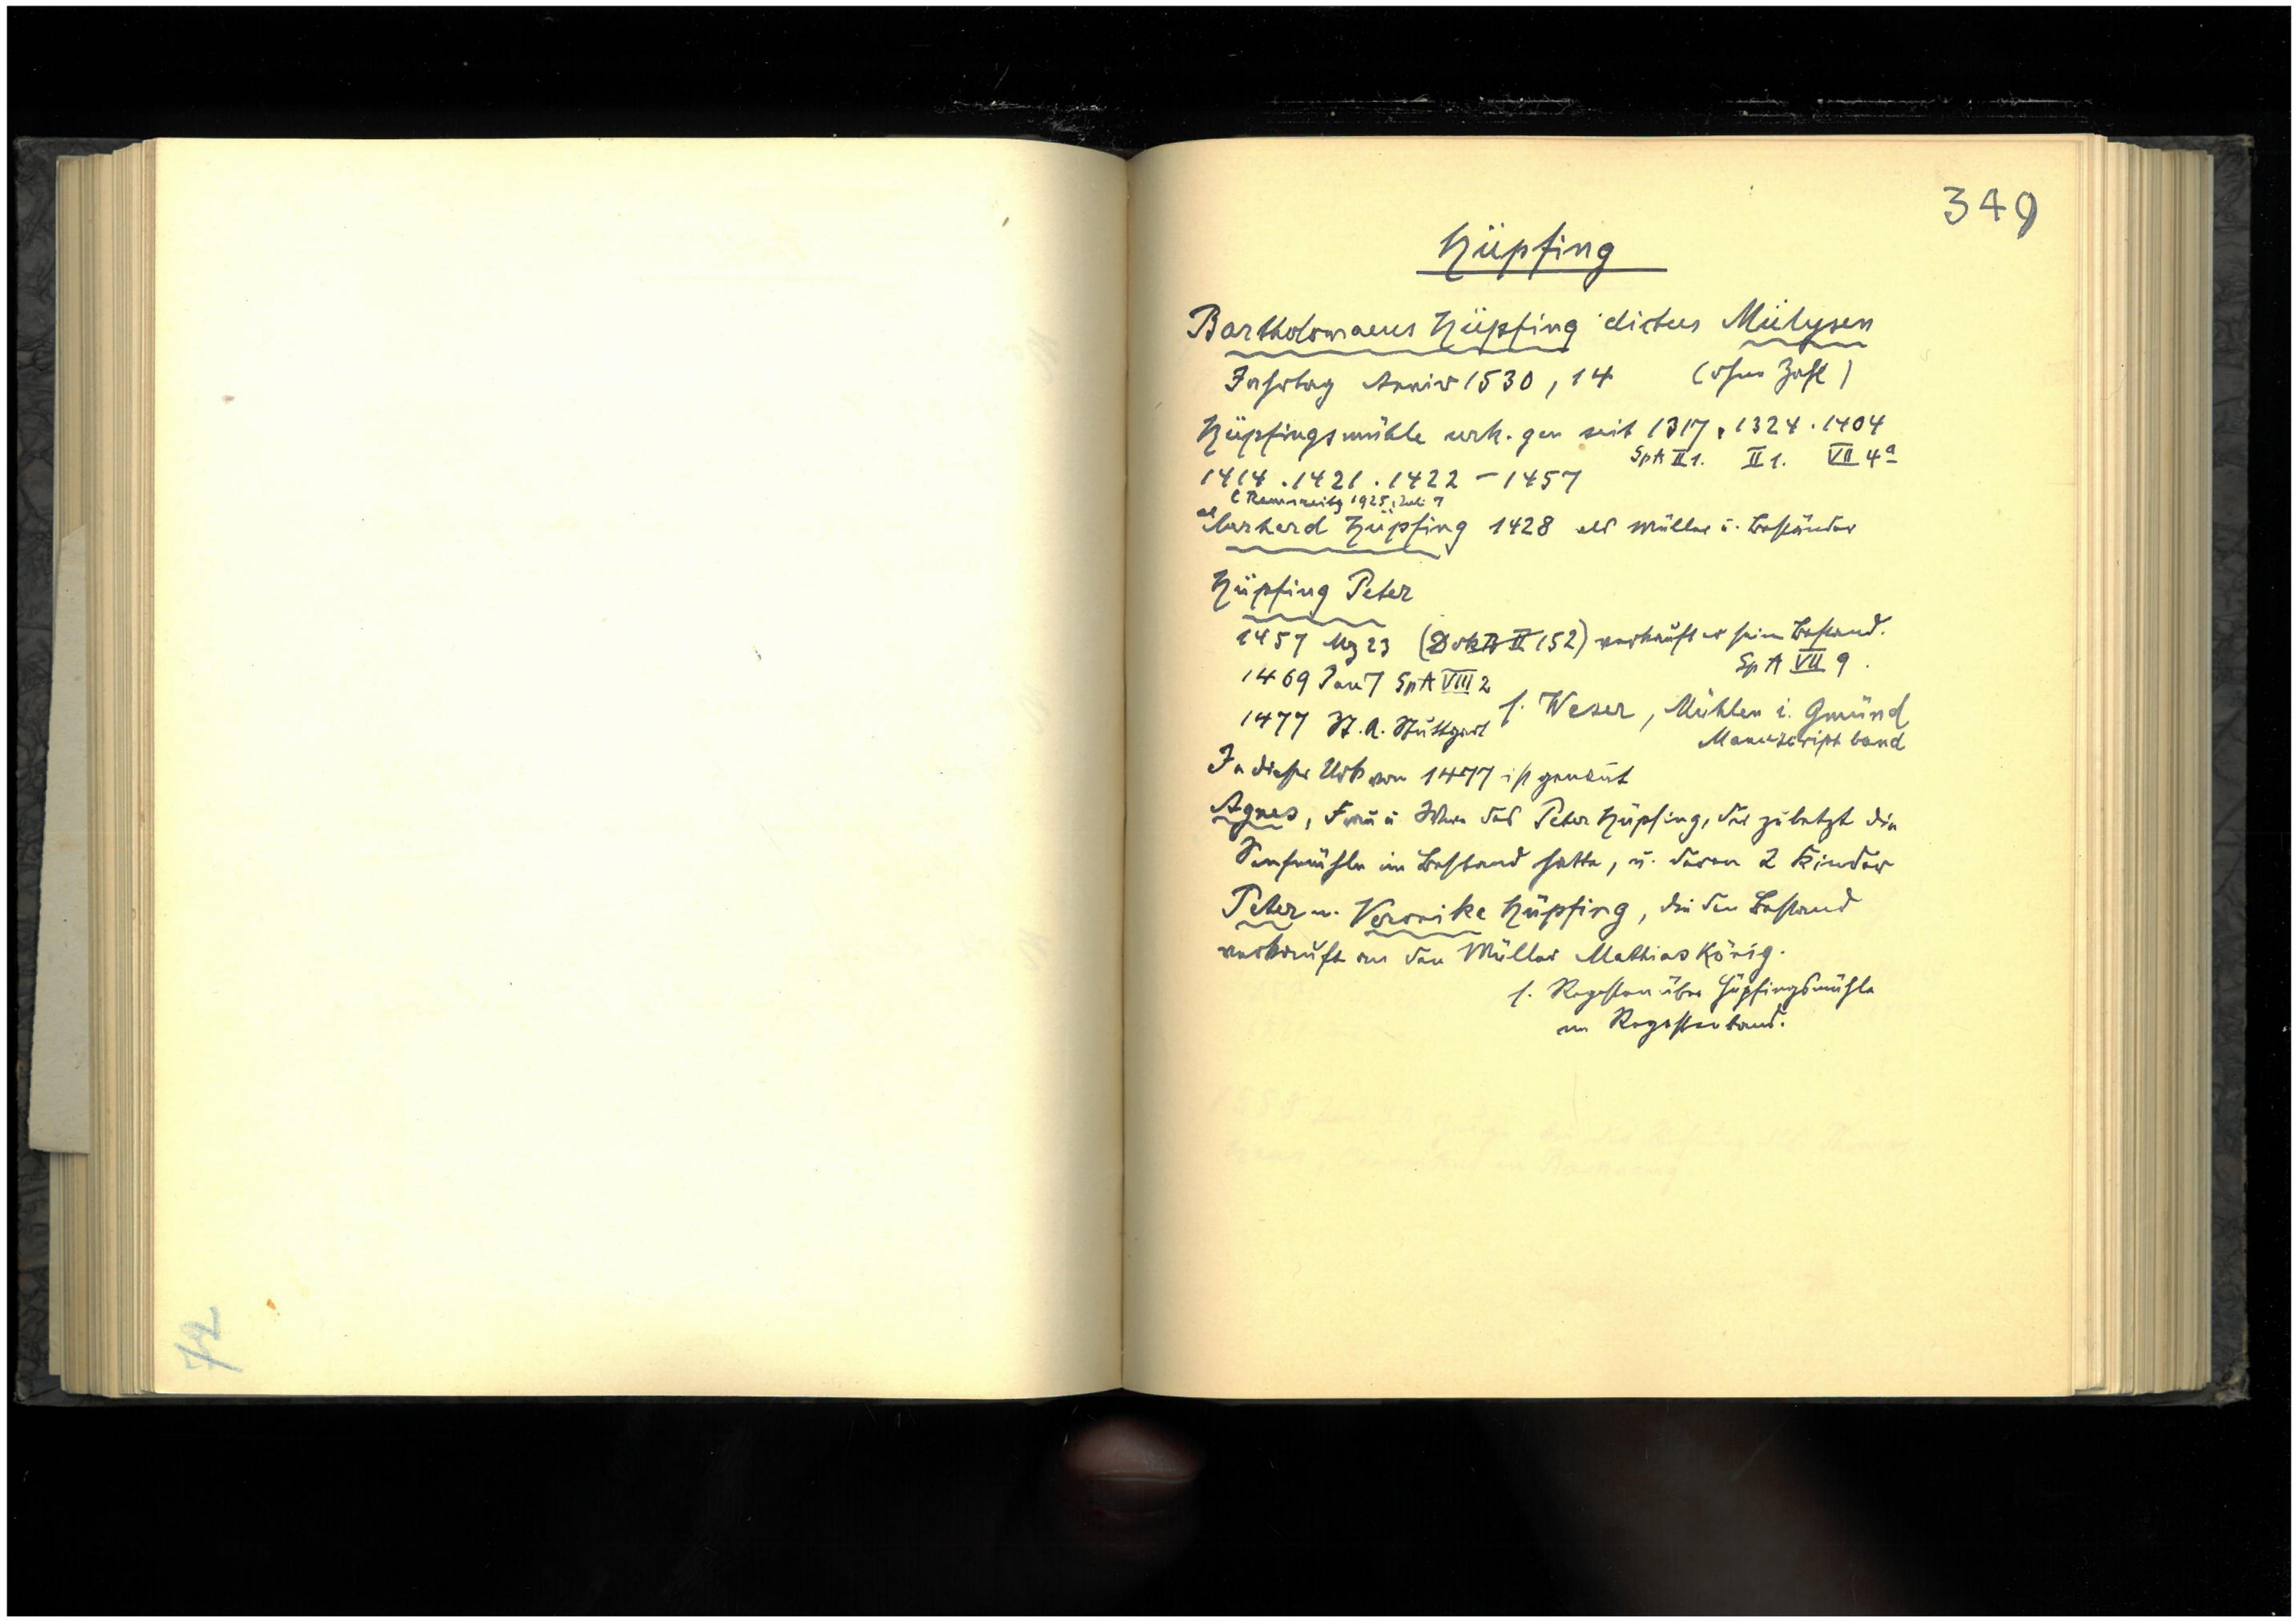 349
Hüpfing
Bartholomaeus Hüpfing dictus Mülysen
Jahrtag Anniv 1530, 14 (ohne Zahl)
Hüpfingsmühle urk. gen seit 1317, 1324. 1404
SpA II 1. II 1. VII 4a
1414. 1421. 1422 - 1457
Remszeitg 1925, Juli 7
Hüpfing 1428 als Müller u. Beständer
Hüpfing Peter
1457 Mz 23 (II 152) verkauft er sein Bestand.
SpA VII 9.
1469 Jan 7 SpA VIII 2
s. Weser, Mühlen i. Gmünd
1477 St. A. Stuttgart
Manuscriptband
In dieser Urk von 1477 ist genannt
Agnes, Frau u. Wwe des Peter Hüpfing, der zuletzt die
Senfmühle im Bestand hatte, u. deren 2 Kinder
Peter u. Veronike Hüpfing, die den Bestand
verkauft an den Müller Mathias König.
s. Regesten über Hüpfingsmühle
im Regestenband.
72